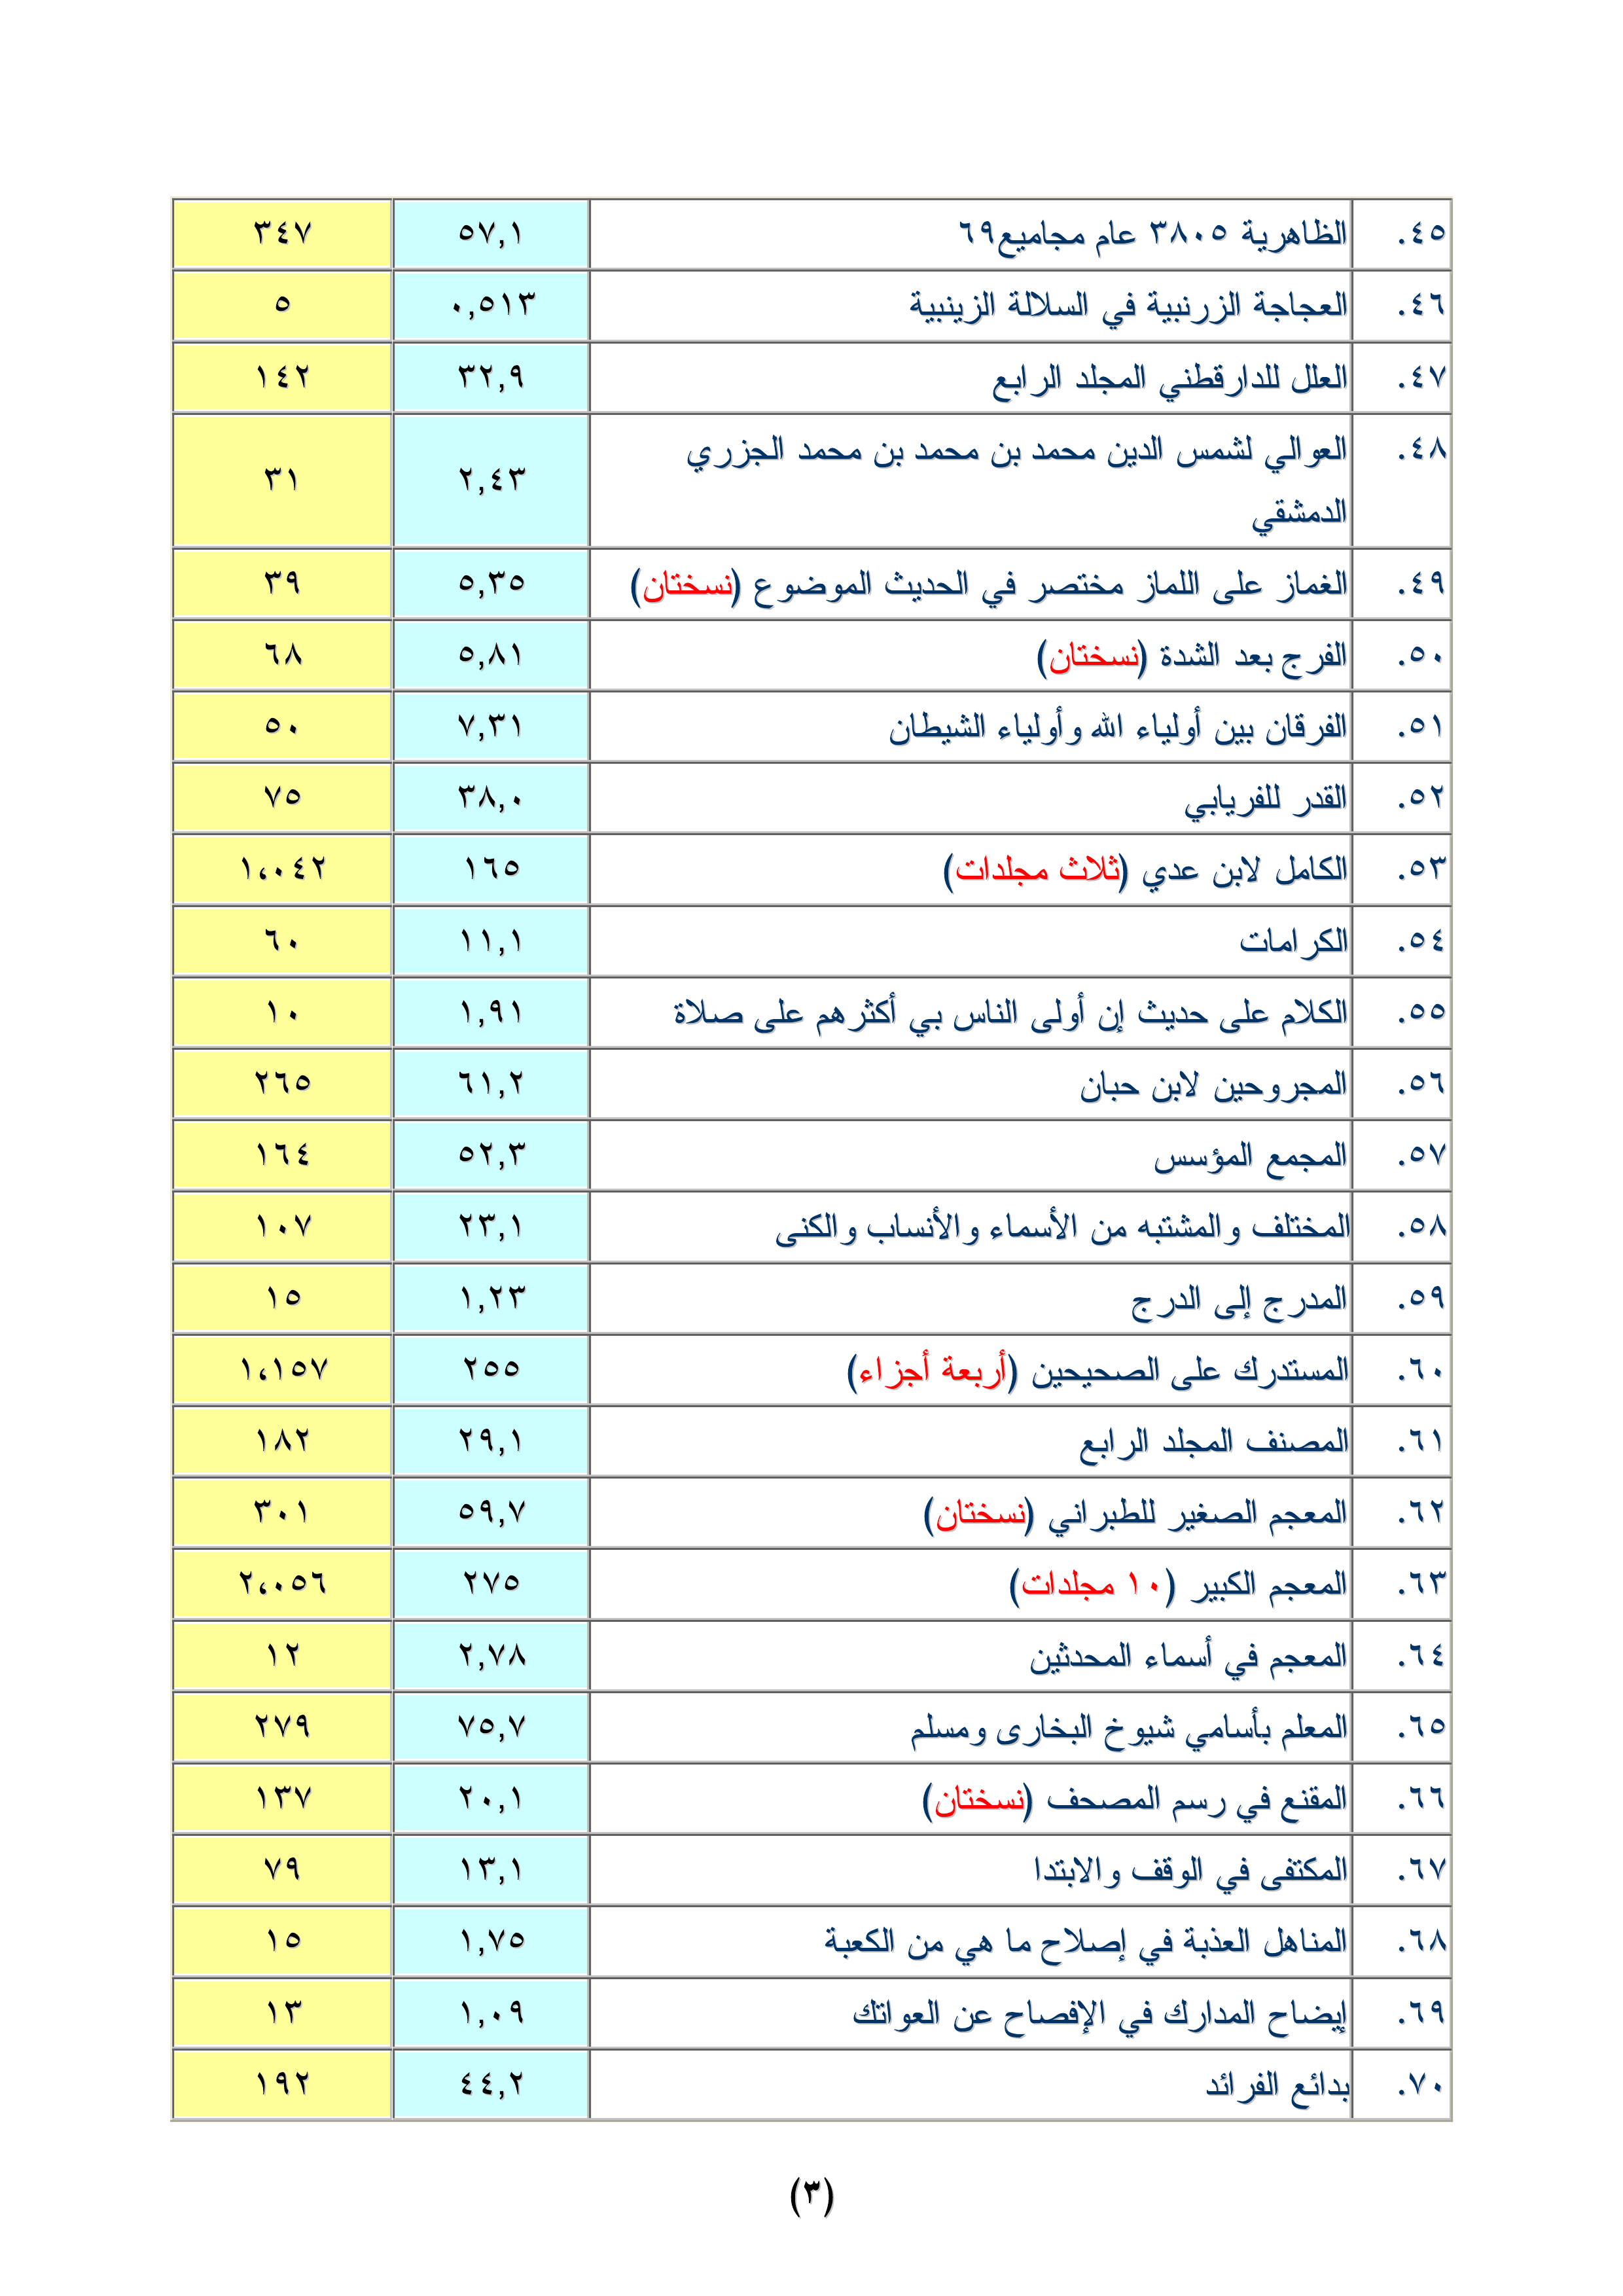 ٤٥. الظاهرية ٣٨٠٥ عام مجاميع٦٩ ٥٧,١ ٣٤٧
٤٦. العجاجة الزرنبية في السلالة الزينبية ٠,٥١٣ ٥
٤٧. العلل للدارقطني المجلد الرابع ٣٢,٩ ١٤٢
٤٨. العوالي لشمس الدين محمد بن محمد بن محمد الجزري
الدمشقي ٢,٤٣ ٣١
٤٩. الغماز على اللماز مختصر في الحديث الموضوع (نسختان) ٥,٣٥ ٣٩
٥٠. الفرج بعد الشدة (نسختان) ٥,٨١ ٦٨
٥١. الفرقان بين أولياء الله وأولياء الشيطان ٧,٣١ ٥٠
٥٢. القدر للفريابي ٣٨,٠ ٧٥
٥٣. الكامل لابن عدي (ثلاث مجلدات) ١٦٥ ١،٠٤٢
٥٤. الكرامات ١١,١ ٦٠
٥٥. الكلام على حديث إن أولى الناس بي أكثرهم على صلاة ١,٩١ ١٠
٥٦. المجروحين لابن حبان ٦١,٢ ٢٦٥
٥٧. المجمع المؤسس ٥٢,٣ ١٦٤
٥٨. المختلف والمشتبه من الأسماء والأنساب والكنى ٢٣,١ ١٠٧
٥٩. المدرج إلى الدرج ١,٢٣ ١٥
٦٠. المستدرك على الصحيحين (أربعة أجزاء) ٢٥٥ ١،١٥٧
٦١. المصنف المجلد الرابع ٢٩,١ ١٨٢
٦٢. المعجم الصغير للطبراني (نسختان) ٥٩,٧ ٣٠١
٦٣. المعجم الكبير (١٠ مجلدات) ٢٧٥ ٢،٠٥٦
٦٤. المعجم في أسماء المحدثين ٢,٧٨ ١٢
٦٥. المعلم بأسامي شيوخ البخارى ومسلم ٧٥,٧ ٢٧٩
٦٦. المقنع في رسم المصحف (نسختان) ٢٠,١ ١٣٧
٦٧. المكتفى في الوقف والابتدا ١٣,١ ٧٩
٦٨. المناهل العذبة في إصلاح ما هي من الكعبة ١,٧٥ ١٥
٦٩. إيضاح المدارك في الإفصاح عن العواتك ١,٠٩ ١٣
٧٠. بدائع الفرائد ٤٤,٢ ١٩٢
(٣)